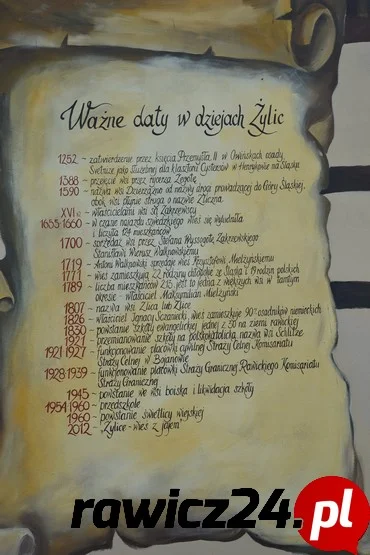 Ważne daty w dziejach Żylic
1252 - zatwierdzenie przez księcia Przemysła II w Owińskach osady
Swetnice jako służebnej dla klasztoru Cystersów w Henrykowie na Śląsku
1388 - przejście wsi rycerza Żegotę
1590 - nazwa wsi Dzierzązno od nazwy drogi prowadzącej do Góry Śląskiej,
obok wsi płynie struga o nazwie Zliczna.
XVI c - właścicielami wsi są Zakrzewscy
1655-1660 - w czasie najazdu szwedzkiego wieś się wyludniła
i liczyła 124 mieszkańców
1700 - sprzedaż wsi przez Stefana Wyssogotę Zakrzewskiego
Stanisławi Wierusz Walknowskiemu
1719 - Antoni Walknowski sprzedaje wieś Krzysztofowi Mielżyńskiemu
1771 - wieś zamieszkują 22 rodziny chłopskie ze Śląska i 19 rodzin polskich
1789 - liczba mieszkańców 215, jest to jedna z większych wsi w tamtym
okresie - właściciel Maksymilian Mielżyński
1807 - nazwa wsi Zlica lub Zlice
1826 - właściciel Ignacy Sczaniecki, wieś zamieszkuje 90% osadników niemieckich
1830 - powstanie szkoły ewangelickiej jednej z 50 na ziemi rawickiej
1921 - przemianowanie szkoły na polskokatolicką, nazwa wsi Schlitze
1921-1927 - funkcjonowanie placówki cywilnej Straży Celnej Komisariatu
Straży Celnej w Bojanowie
1928-1939 - funkcjonowanie placówki Straży Granicznej Rawickiego Komisariatu
Straży Granicznej
1945 - powstanie we wsi boiska i likwidacja szkoły
1954-1960 - przedszkole
1960 - powstanie świetlicy wiejskiej
2012 - "Żylice - wieś z jajem"
rawicz24.pl